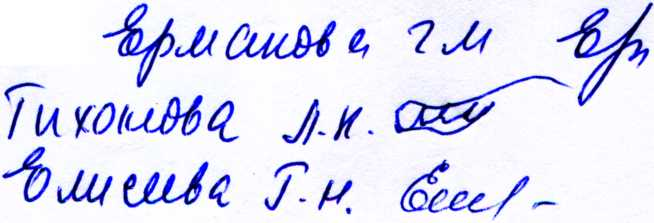 Ермакова г м Ер
Тихонова Л.Н.
Елисеева Г.Н. Ели